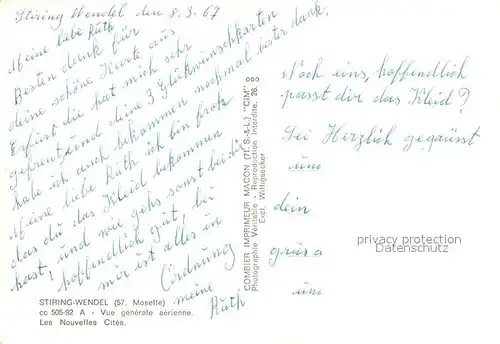 Stiring Wendel den 8.3.67
Meine liebe Ruth
Besten dank für
deine schöne Karte aus
Erfurt die hat mich sehr
gefreut und deine 3 Glückwünschkarten
habe ich auch bekommen nochmal bester dank.
Meine liebe Ruth ich bin froh
das du das Kleid bekommen
hast, und wie gehs sonst bei dir
hoffendlich gut, bei
mir ist alles in
Ordnung
meine
Ruth
STIRING-WENDEL (57. Moselle)
cc 505-92 A - Vue générale aérienne.
Les Nouvelles Cités.
COMBIER IMPRIMEUR MACON (71. S.-&-L.) "CIM"
Photographie Véritable - Reproduction Interdite. 26.
Excl. Willigsecker
Noch eins, hoffendlich
passt dir das Kleid?
Sei Herzlich gegrüsst
und
dein
privacy protection
oldthing.de